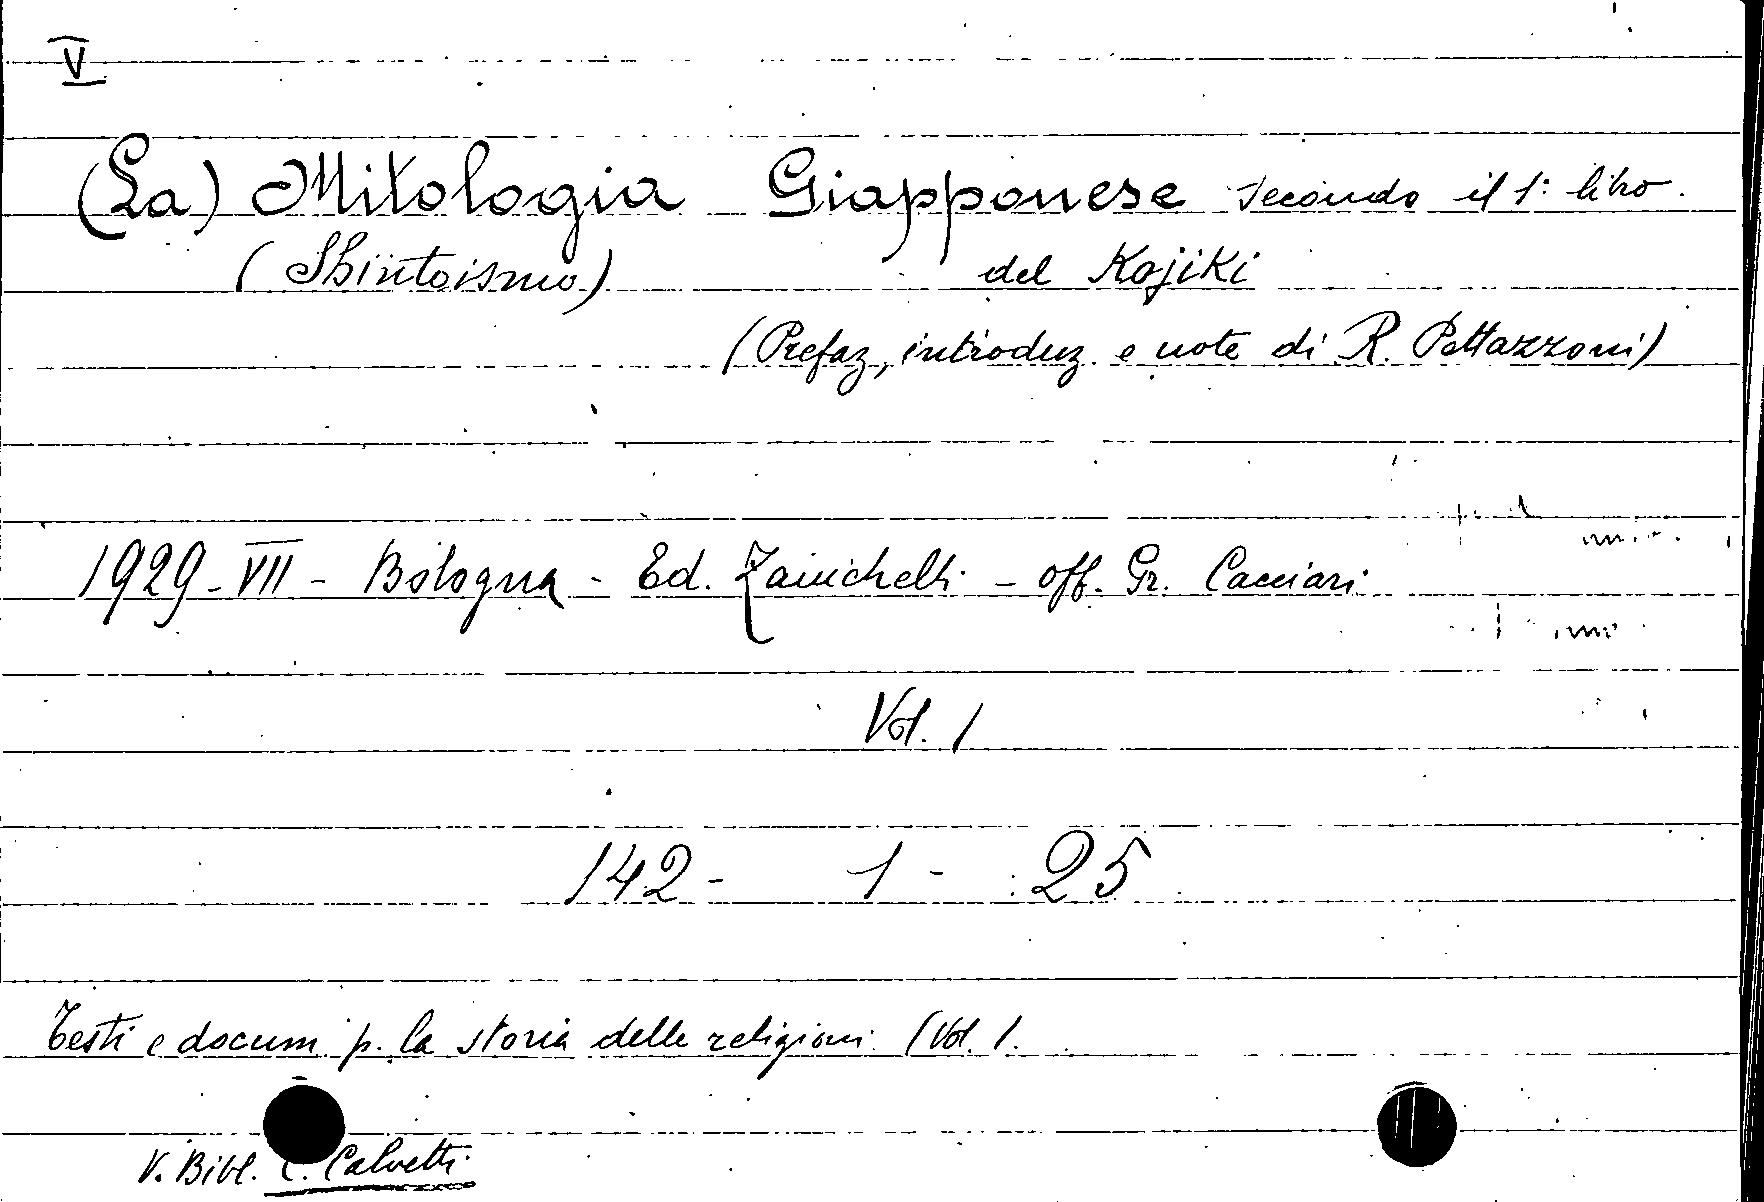 V
(La) Mitologia Giapponese secondo il 1º libro
(Shintoismo) del Kojiki
(Prefaz, introduz. e note di R. Pettazzoni)
1929-VII - Bologna - Ed. Zanichelli - Off. Gr. Cacciari
Vol. 1
142 - 1 - 25
Testi e docum. p. la storia delle religioni (Vol. 1.
V. Bibl. C. Calvetti